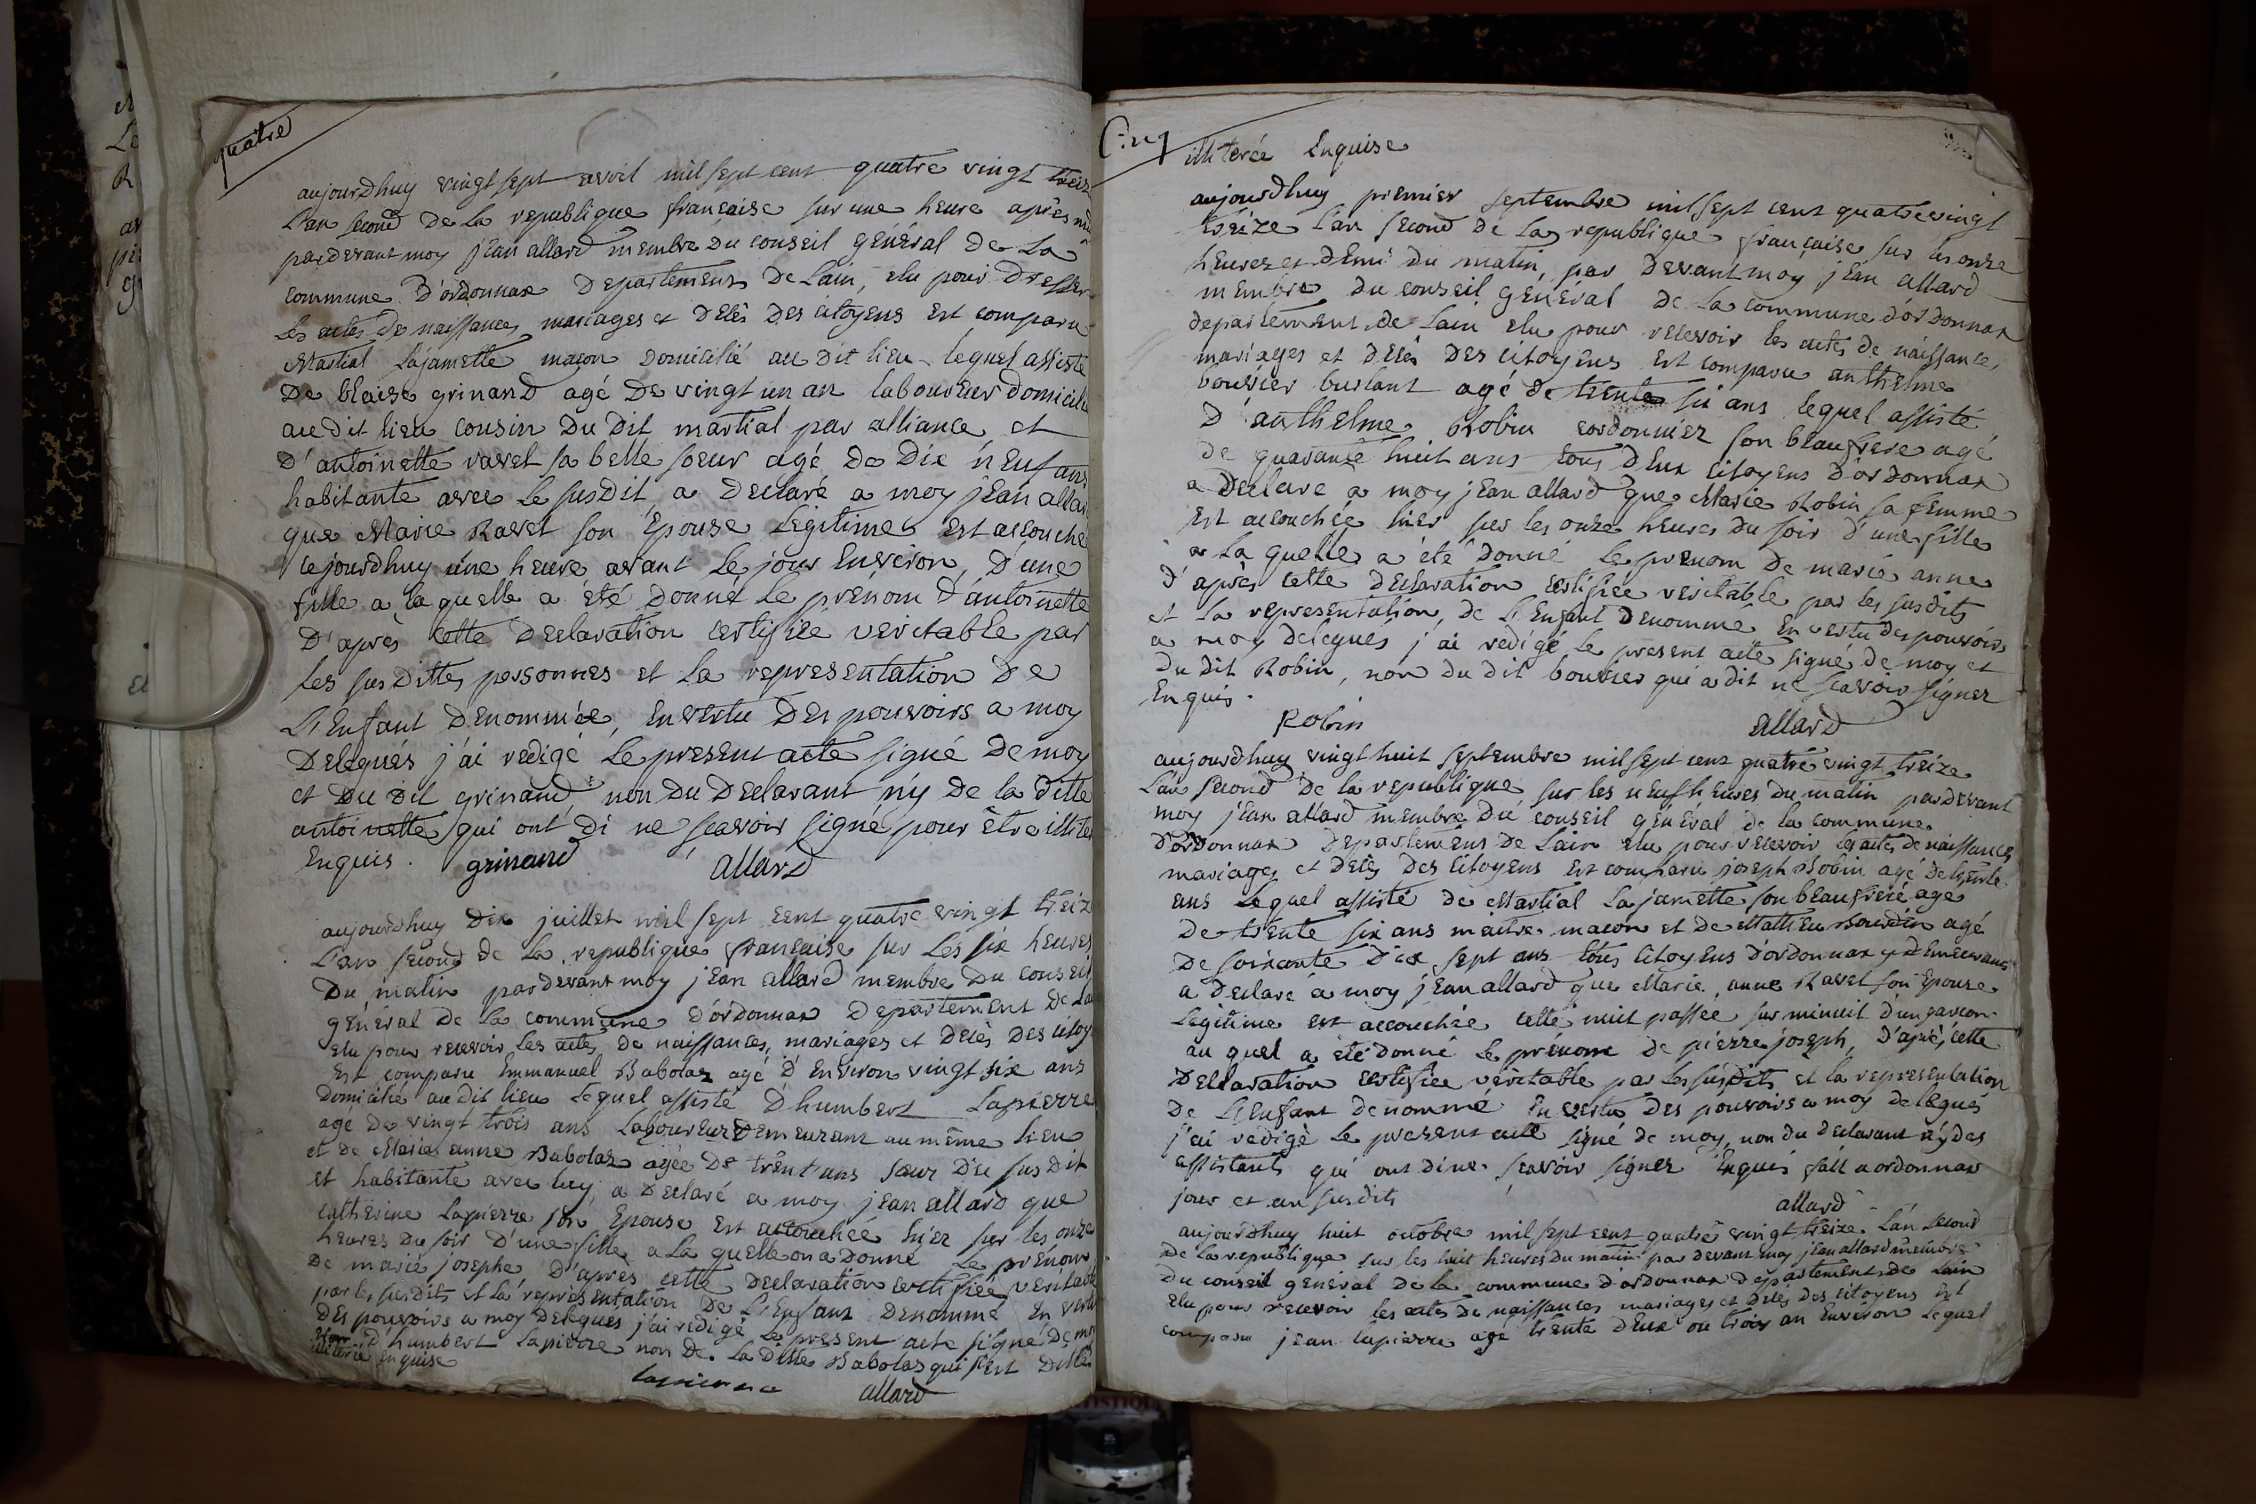 quatre
aujourdhuy vingt sept avril mil sept cent quatre vingt treize
L'an second de la republique française sur une heure après midi
pardevant moy jean allard membre du conseil général de La
commune d'ordonnax departement de Lain, elu pour dresser
Les actes de naissances, mariages et délès des citoyens est comparu
Martial Lajamette maçon domicilié au dit lieu lequel assisté
de blaise grinand agé de vingt un an laboureur domicilié
au dit lieu cousin du dit martial par alliance et
d'antoinette ravet sa belle soeur agé de dix neuf ans
habitante avec le susdit, a declaré a moy jean allard
que Marie Ravet son Epouse Légitime est accouché
cejourdhuy une heure avant le jour environ, d'une
fille a la quelle a été donné le prénom d'antoinette
d'après cette declaration certifiée veritable par
les susdittes personnes et la representation de
L'Enfant denommée, en vertu des pouvoirs a moy
delegués j'ai redigé le present acte signé de moy
et du dit grinand non du declarant n'y de la ditte
antoinette qui ont di ne sçavoir signé pour être illiteré
Enquis. grinand allard
aujourdhuy dix juillet mil sept cent quatre vingt treize
L'an second de la republique française sur les six heures
du matin pardevant moy jean allard membre du conseil
général de la commune d'ordonnax departement de Lain
elu pour recevoir les actes de naissances, mariages et délès des citoy
est comparu Emmanuel Babolaz agé d'environ vingt six ans
domicilié au dit lieu lequel assisté d'humbert Lapierre
agé de vingt trois ans laboureur demeurant au même lieu
et de Marie anne Babolaz agée de trent ans soeur du susdit
et habitante avec luy, a declaré a moy jean allard que
catherine Lapierre son Epouse est accouchée hier sur les onze
heures du soir d'une fille a la quelle on a donné le prenom
de marie josephe d'après cette declaration certifiée veritable
par les susdits et la representation de L'Enfant denommé en vertu
des pouvoirs a moy delegués j'ai redigé le present acte signé de moy
d'humbert Lapierre non de la ditte Babolaz qui s'est ditte
illiterée enquise
lapierre allard
Cinq
illiterée Enquise
aujourdhuy premier septembre mil sept cent quatre vingt
treize l'an second de la republique française sur les onze
heures et demi du matin, par devant moy jean allard
membre du conseil général de la commune d'ordonnax
departement de Lain elu pour recevoir les actes de naissance,
mariages et délès des citoyens est comparu anthelme
bouvier burlant agé de trente six ans lequel assisté
d'anthelme Robin cordonnier son beaufrere agé
de quarante huit ans tous deux citoyens d'ordonnax
a declaré a moy jean allard que Marie Robin sa femme
est accouchée hier sur les onze heures du soir d'une fille
a la quelle a été donné le prenom de marie anne
d'après cette declaration certifiée veritable par les susdits
et la representation, de L'Enfant denommé, en vertu des pouvoirs
a moy delegués j'ai redigé le present acte signé de moy et
du dit Robin, non du dit bouvier qui a dit ne sçavoir signer
Enquis.
Robin allard
aujourdhuy vingt huit septembre mil sept cent quatre vingt treize
L'an second de la republique sur les neuf heures du matin pardevant
moy jean allard membre du conseil général de la commune
d'ordonnax departement de Lain elu pour recevoir les actes de naissances
mariages et délès des citoyens est comparu joseph Robin agé de trente
ans Lequel assisté de Martial Lajamette son beaufrere agé
de trente six ans maitre maçon et de Mathieu Bourdin agé
de soixante dix sept ans tous citoyens d'ordonnax y demeurans
a declaré a moy jean allard que Marie anne Ravet son Epouse
Legitime est accouchée cette nuit passée sur minuit d'un garcon
au quel a été donné le prenom de pierre joseph, d'après cette
declaration certifiée véritable par les susdits et la representation
de L'Enfant denommé en vertu des pouvoirs a moy delegués
j'ai redigé le present acte signé de moy, non du declarant n'y des
assistants qui ont di ne sçavoir signer Enquis fait a ordonnax
jour et an susdits
allard
aujourdhuy huit octobre mil sept cent quatre vingt treize. L'an second
de la republique sur les huit heures du matin par devant moy jean allard membre
du conseil general de la commune d'ordonnax departement de Lain
elu pour recevoir les actes de naissances mariages et délès des citoyens est
comparu jean lapierre agé trente deux ou trois an Environ lequel